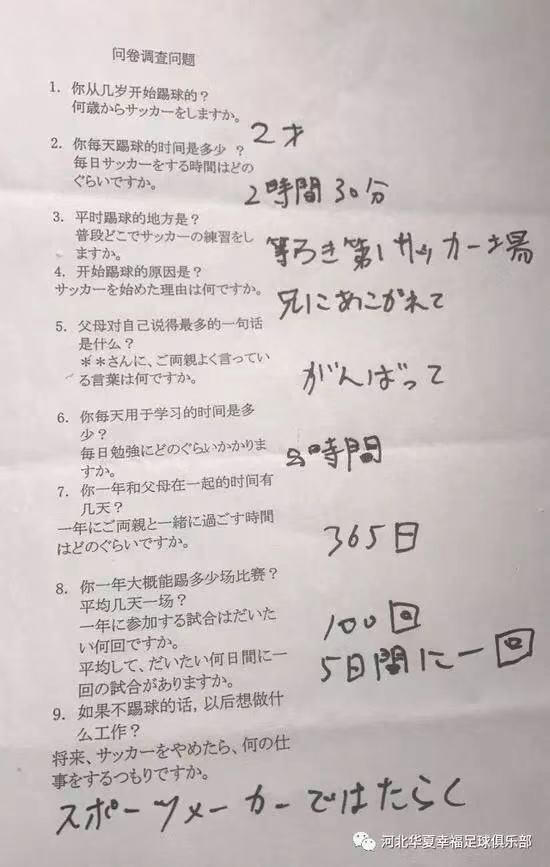 问卷调查问题
1. 你从几岁开始踢球的？
何歳からサッカーをしますか。
2才
2. 你每天踢球的时间是多少 ？
毎日サッカーをする時間はどの
ぐらいですか。
2時間30分
3. 平时踢球的地方是？
普段どこでサッカーの練習をし
ますか。
等々き第1サッカー場
4. 开始踢球的原因是？
サッカーを始めた理由は何ですか。
兄にあこがれて
5. 父母对自己说得最多的一句话
是什么？
＊＊さんに、ご両親よく言ってい
る言葉は何ですか。
がんばって
6. 你每天用于学习的时间是多
少？
毎日勉強にどのぐらいかかりま
すか。
時間
7. 你一年和父母在一起的时间有
几天？
一年にご両親と一緒に過ごす時間
はどのぐらいですか。
365日
8. 你一年大概能踢多少场比赛？
平均几天一场？
一年に参加する試合はだいた
い何回ですか。
平均して、だいたい何日間に一
回の試合がありますか。
100回
5日間に一回
9. 如果不踢球的话，以后想做什
么工作？
将来、サッカーをやめたら、何の仕
事をするつもりですか。
スポーツメーカーではたらく
河北华夏幸福足球俱乐部